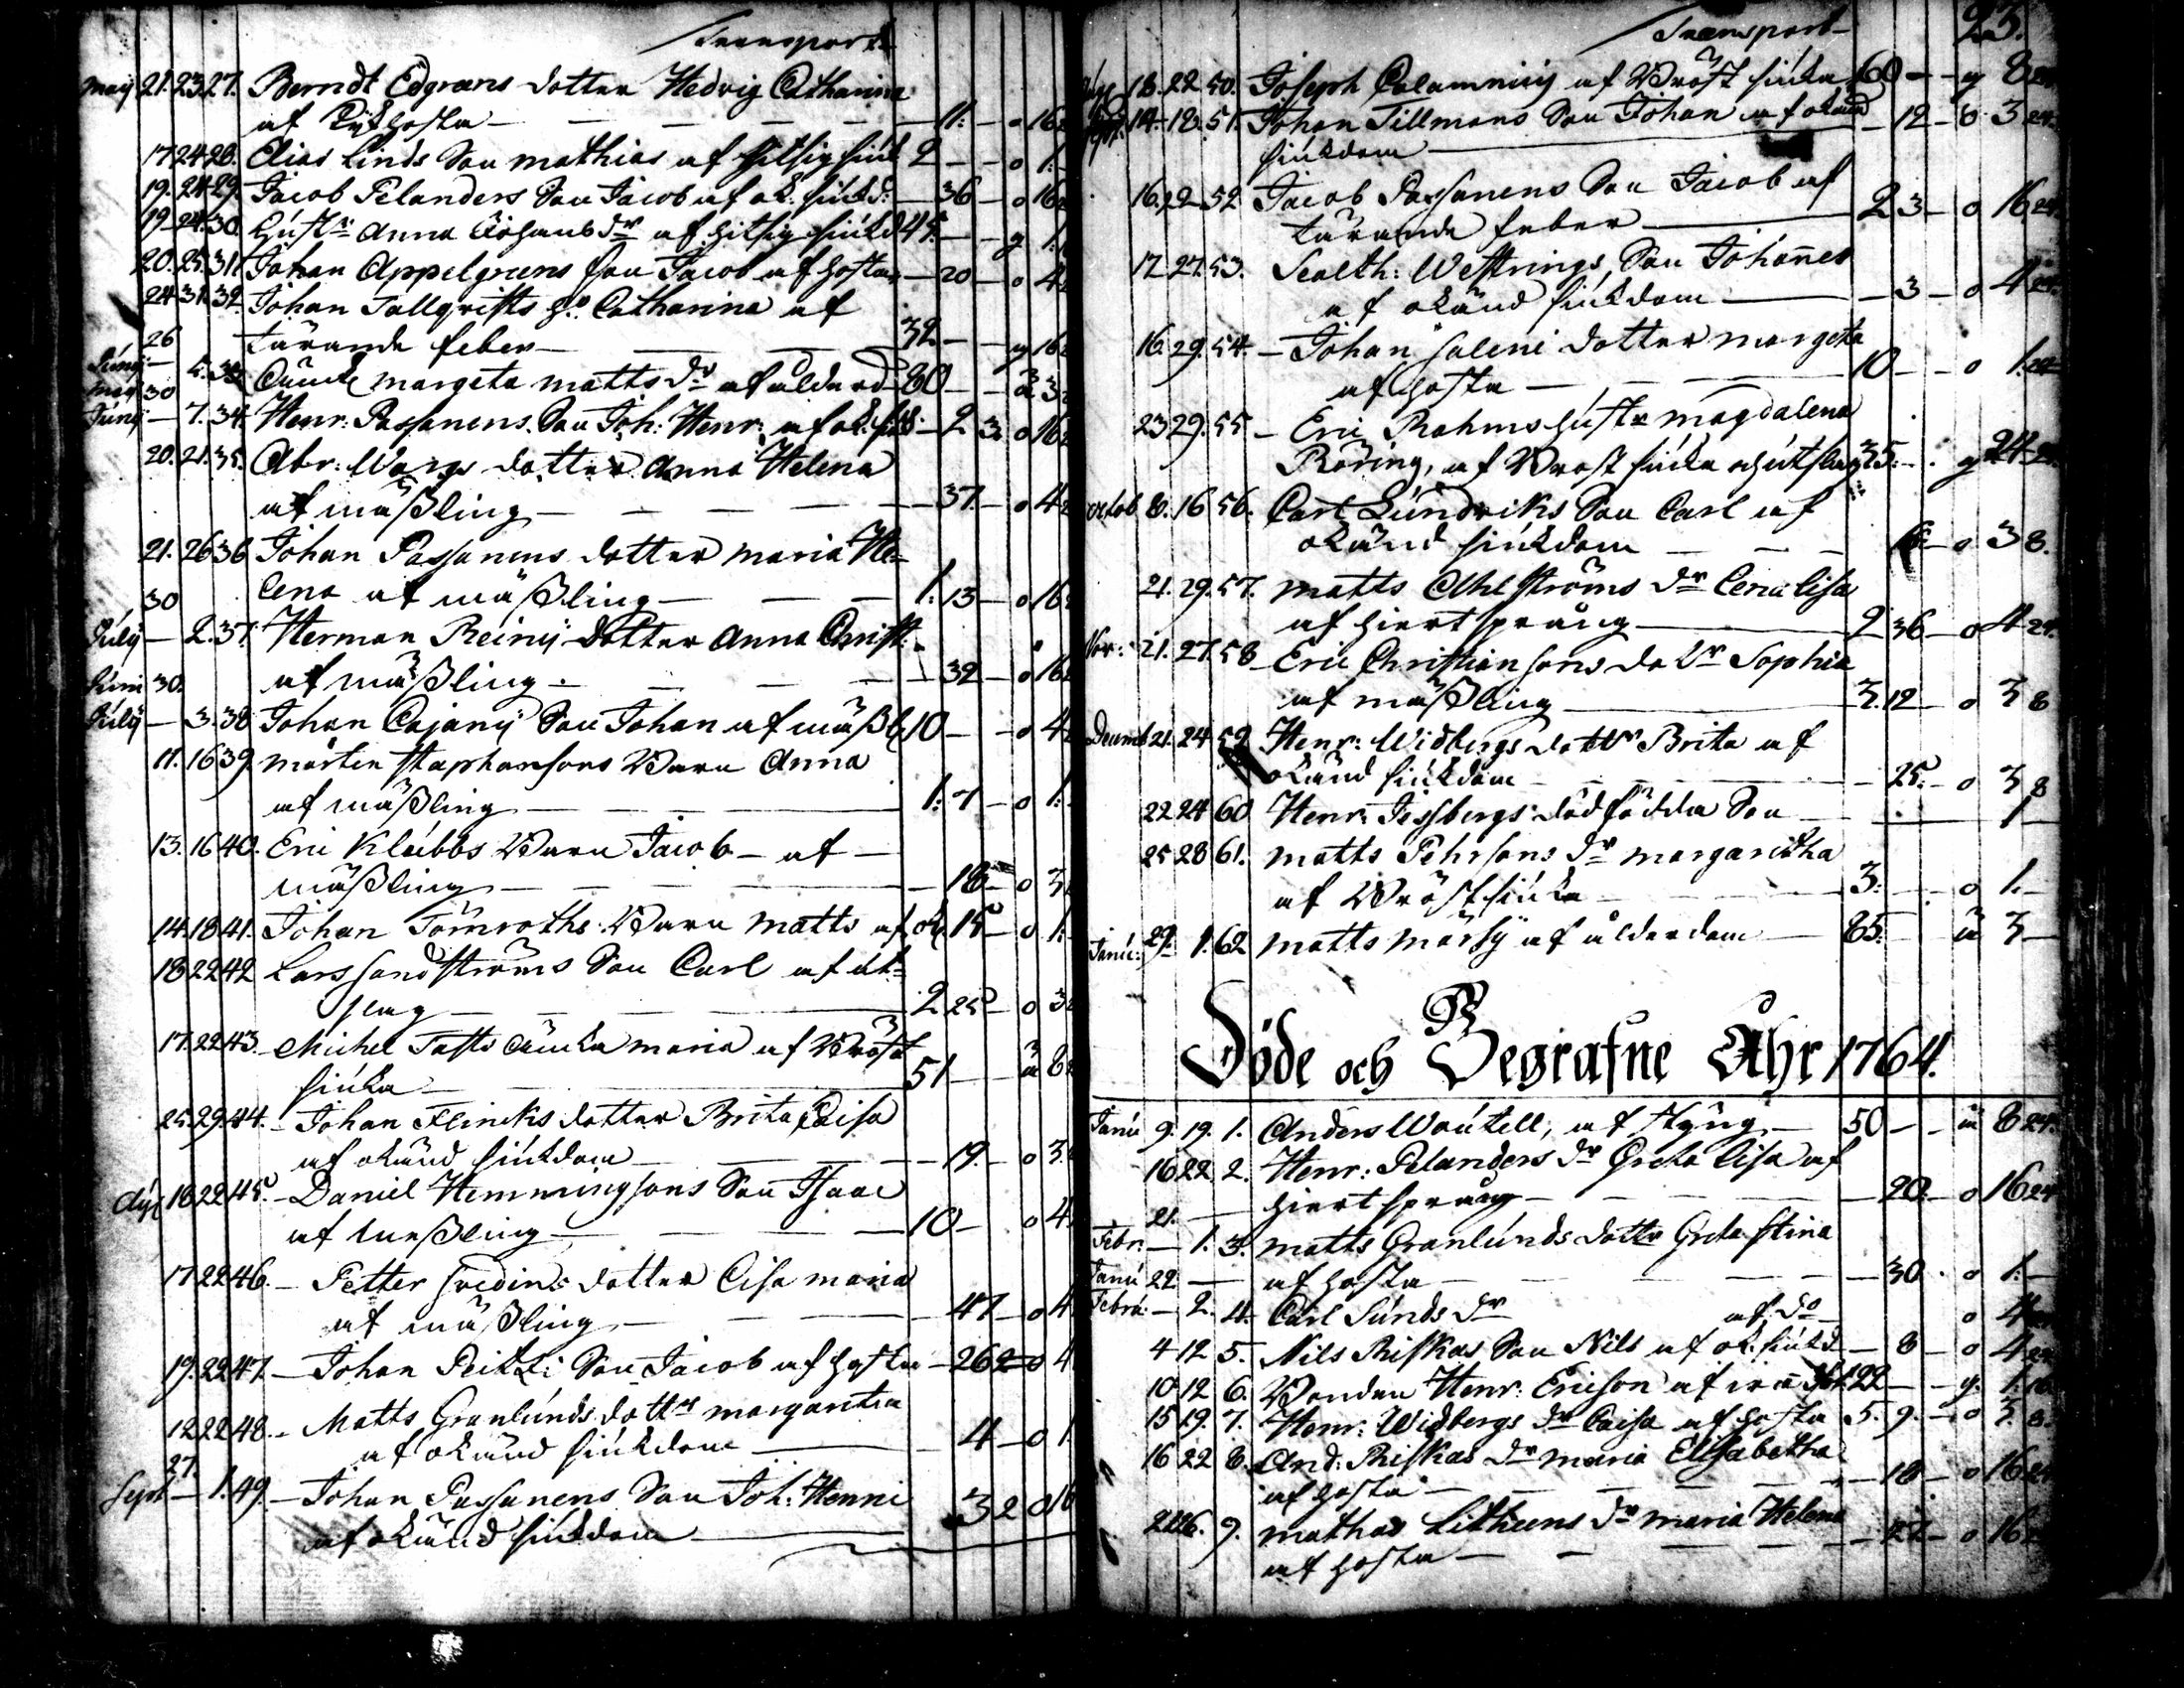 Transport
May 21. 23. 27. Berndt Edgrens dotter Hedvig Catharina
af Kikhosta — 11. — o 16
17. 24. 28. Elias Linds Son Mathias af hitsig siukd 2 — o 1.
19. 24. 29. Jacob Pelanders Son Jacob af ok: siukd: — 36 — o 16
19. 24. 30. Hustr Anna Johansdr af hitsig siukd 45. — g 1.
20. 25. 31. Johan Appelgrens Son Jacob af hosta — 20 — o 4
24. 31. 32. Johan Tallqvists h:o Catharina af
26 tärande feber — 32 — g 16
Junij — 5. 33. Änck Margeta Matts dr af ålderd 80 — ä 3
May 30
Junij — 7. 34. Henr: Passanens Son Joh: Henr: af ok: siukd — 2 3. o 16
20. 21. 35. Abr: Wargs dotter Anna Helena
af mäßling — 37. — o 4
21. 26. 36. Johan Passanens dotter Maria He=
lena af mäßling — 1. 13 — o 16
30
July — 2. 37. Herman Reinij dotter Anna Christ:
af mäßling — 32 — o 16
Juni 30.
July — 3. 38. Johan Cajanij Son Johan af mäßl 10 — o 4
11. 16 39. Mårten Staphansons Barn Anna
af mäßling — 1. 7 — o 1.
13. 16 40. Eric Klubbs Barn Jacob — af —
mäßling — 18 — o 3
14. 18 41. Johan Törnroths Barn Matts af ok 15 — o 1.
18 22 42 Lars Sandströms Son Carl af ut=
slag — 2 25 — o 3
17. 22 43. Michel Tasts Äncka Maria af Bröst
siuka — 51 — ä 8
25. 29 44. Johan Flincks dotter Brita Caisa
af okänd siukdom — 19. — o 3.
Aug 18 22 45. Daniel Hemmingsons Son Isaac
af meßling — 10 — o 4.
17 22 46. Petter Sredins dotter Lisa Maria
af mäßling — 47 — o 4
19. 22 47. Johan Son Jacob af hosta — 26 2 — o 4
12 22 48. Matts Granlunds dottr Margaretha
af okänd siukdom — 4 — o 1
27.
Sept — 1. 49. Johan Passanens Son Joh: Henric
af okänd siukdom — 3 2 o 16
Transport 23.
Aug 18. 22 50. Joseph Calamnius af Bröst siuka 60 — g 8 24
Sept. 14. 18. 51. Johan Tillmans Son Johan af okänd — 12 — o 3 24.
siukdom
16. 22 52 Jacob Passanens Son Jacob af
tärande feber — 2 3 — o 16 24.
17 27. 53. Sealth: Westrings Son Johannes
af okänd siukdom — 3 — o 4 24.
16. 29. 54. Johan Saleni dotter Margeta
af hosta — 10 — o 1. 24
23 29. 55 Eric Rahms hustr Magdalena
Röring, af Brost siuka och utslag 35. — g 24
Octob 8. 16 56. Carl Lundviks Son Carl af
okänd siukdom — o 3 8.
21. 29. 57. Matts Ahlströms dr Lena Lisa
af hiertsprång — 2 36 — o 4 24.
Nov: 21. 27. 58 Eric Christiansons dotr Sophia
af mäßling — 3. 12 — o 3 8
Decemb 21. 24 59 Henr: Widbergs dottr Brita af
okänd siukdom — 25. — o 3 8
22 24 60 Henr: Jessbergs dödfödda Son — 1
25 28 61. Matts Pehrsons dr Margaretha
af Bröstsiuka — 3. — o 1. —
Janu: 29. 1. 62 Matts af ålderdom — 85. ä 3 —
Döde och Begrafne Åhr 1764.
Janu 9. 19. 1. Anders Woutell, af Styng. — 50 — ä 8 24.
16 22 2. Henr: Pelanders dr Greta Lisa af
hiertsprång — 20. — o 16 24
21. —
Febr: — 1. 3. Matts Granlunds dottr Greta Stina
Janu 22. — af hosta — 30. o 1. —
Febru: — 2. 4. Carl Sunds dr af do — o 4
4 12 5. Nils Riskas Son Nils af ok siukd — 8 — o 4
10 12 6. Bonden Henr: Ericson af 22 — g. 1.
15 19. 7. Henr: Widbergs dr Caisa af hosta 5. 9. — o 3. 8.
16 22 8. And: Riskas dr Maria Elisabetha
af hosta — 18 — o 16 24
22 26. 9. Mathas Litheens dr Maria Helena
af hosta — 27 — o 16